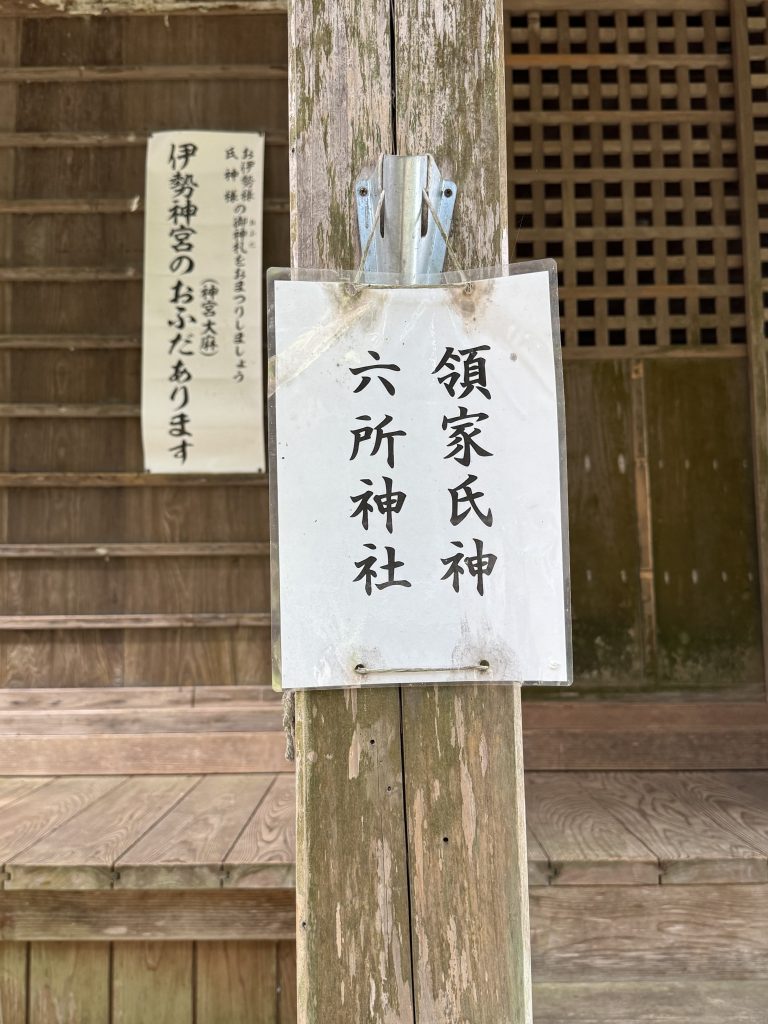 領家氏神
六所神社
お伊勢様の御神札をおまつりしましょう
氏神様
おふだ
(神宮大麻)
伊勢神宮のおふだあります